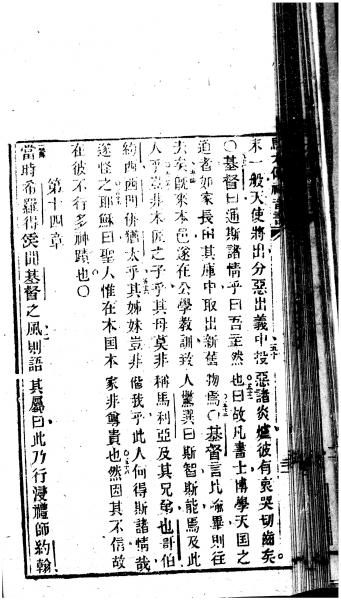 末一般天使將出分惡出義中投惡諸炎爐彼有哀哭切齒矣。
〇基督曰通斯諸情乎曰吾主然也曰故凡書士博學天国之
道者如家長由其庫中取出新舊物焉〇基督言比畢則往
去矣旣來本邑遂在公學教訓致人驚異曰斯智斯能焉及此
人乎豈非木匠之子乎其母莫非稱馬利亞及其兄弟也哥伯
約西西門併猶太乎其姊妹豈非偕我乎此人何得斯諸情哉
遂怪之耶穌曰聖人惟在本国本家非尊貴也然因其不信故
在彼不行多神蹟也〇
第十四章
當時希羅得侯聞基督之風則語其屬曰此乃行浸禮師約翰